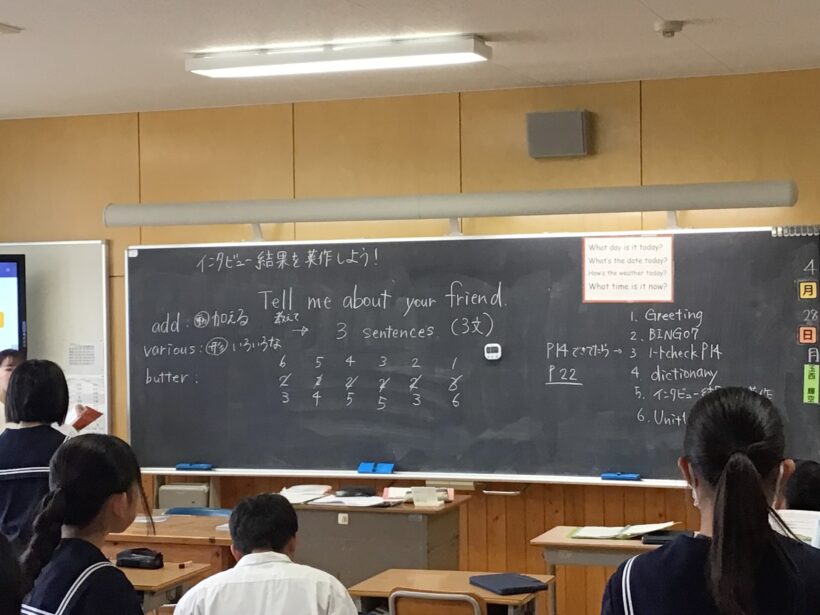 インタビュー結果を英作しよう!
Tell me about your friend.
教えて
→ 3 sentences (3文)
add: 動 加える
various: 形 いろいろな
butter:
6 5 4 3 2 1
2 2 2 2 2
3 4 5 5 3 6
What day is it today?
What's the date today?
How's the weather today?
What time is it now?
P14できてたら→
P22
1. Greeting
2. BINGO7
3 1-1check P14
4 dictionary
5. インタビュー 英作
6. Unit
4
月
28
日
月